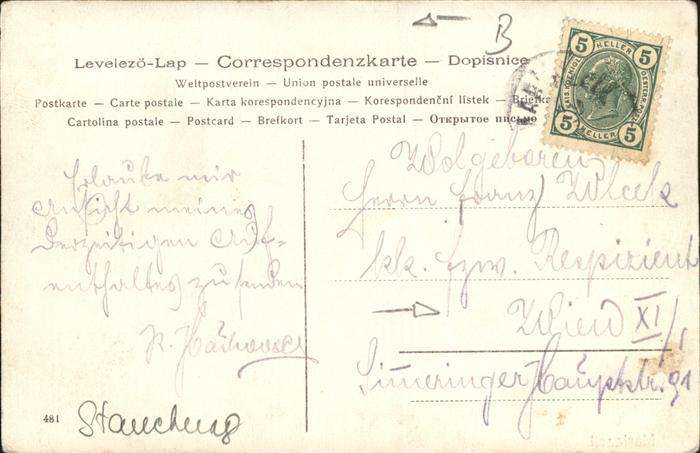 B
Levelező-Lap — Correspondenzkarte — Dopisnice
Weltpostverein — Union postale universelle
Postkarte — Carte postale — Karta korespondencyjna — Korespondenční lístek — Briefka
Cartolina postale — Postcard — Brefkort — Tarjeta Postal — Открытое письмо
5 HELLER 5
5 HELLER 5
Erlaube mir
Ansicht meines
derzeitigen Auf-
enthaltes zu senden
Wolgeboren
Herrn Franz Wlcek
kk. Respizient
Wien XI/1
Simeringer Hauptstr. 91
481